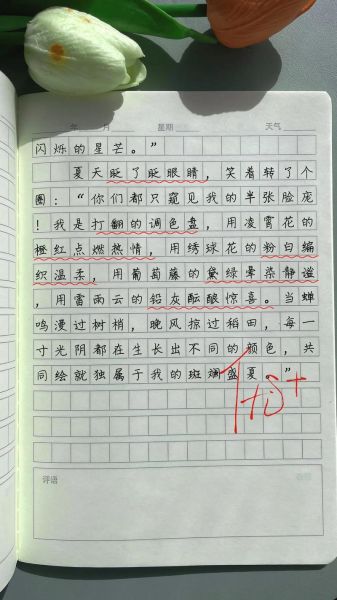 年 月 星期 天气
闪烁的星芒。”
夏天眨了眨眼睛，笑着转了个
圈：“你们都只窥见我的半张脸庞
！我是打翻的调色盘，用凌霄花的
橙红点燃热情，用绣球花的粉白编
织温柔，用葡萄藤的黛绿晕染静谧
，用雷雨云的铅灰酝酿惊喜。当蝉
鸣漫过树梢，晚风掠过稻田，每一
寸光阴都在生长出不同的颜色，共
同绘就独属于我的斑斓盛夏。”
评语